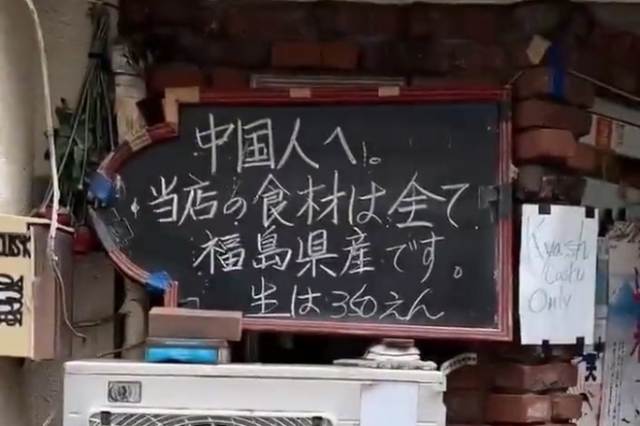 中国人へ!。
当店の食材は全て
福島県産です。
生は350えん
Cash
Only